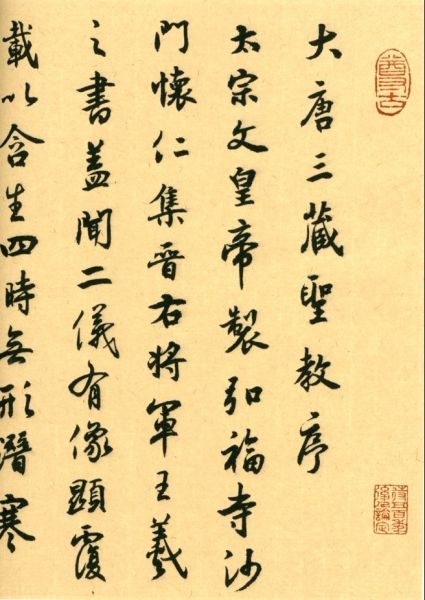 大唐三藏聖教序
太宗文皇帝製弘福寺沙
門懷仁集晉右將軍王羲
之書蓋聞二儀有像顯覆
載以含生四時無形潛寒